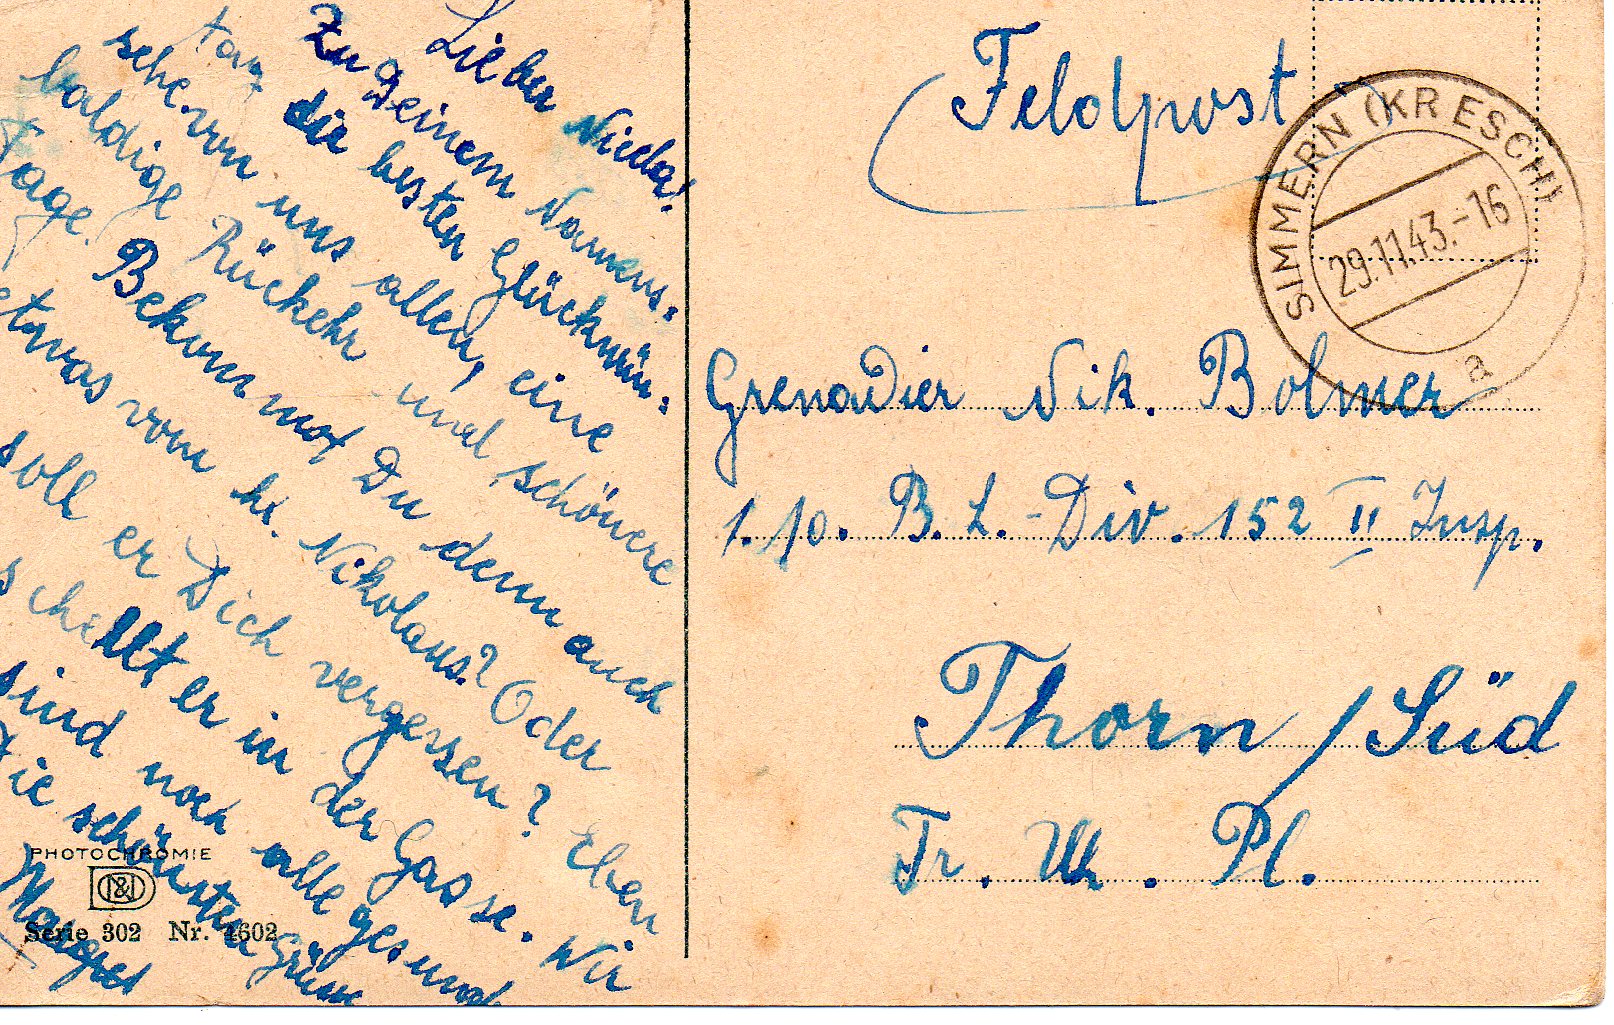 Lieber Nicla!
Zu Deinem Namens-
tag die besten Glückwün-
sche von uns allen, eine
baldige Rückehr und schönere
Tage. Bekommst Du denn auch
etwas vom hl. Nikolaus? Oder
soll er Dich vergessen? Eben
schellt er in der Gasse. Wir
sind noch alle gesund
Die schönsten Grüsse
PHOTOCHROMIE
Serie 302 Nr. 4602
Feldpost
SIMMERN (KR ESCH)
29.11.43.-16
a
Grenadier Nik. Bolmer
1. 10. B. L.-Div. 152 II Insp.
Thorn / Süd
Tr. Üb. Pl.